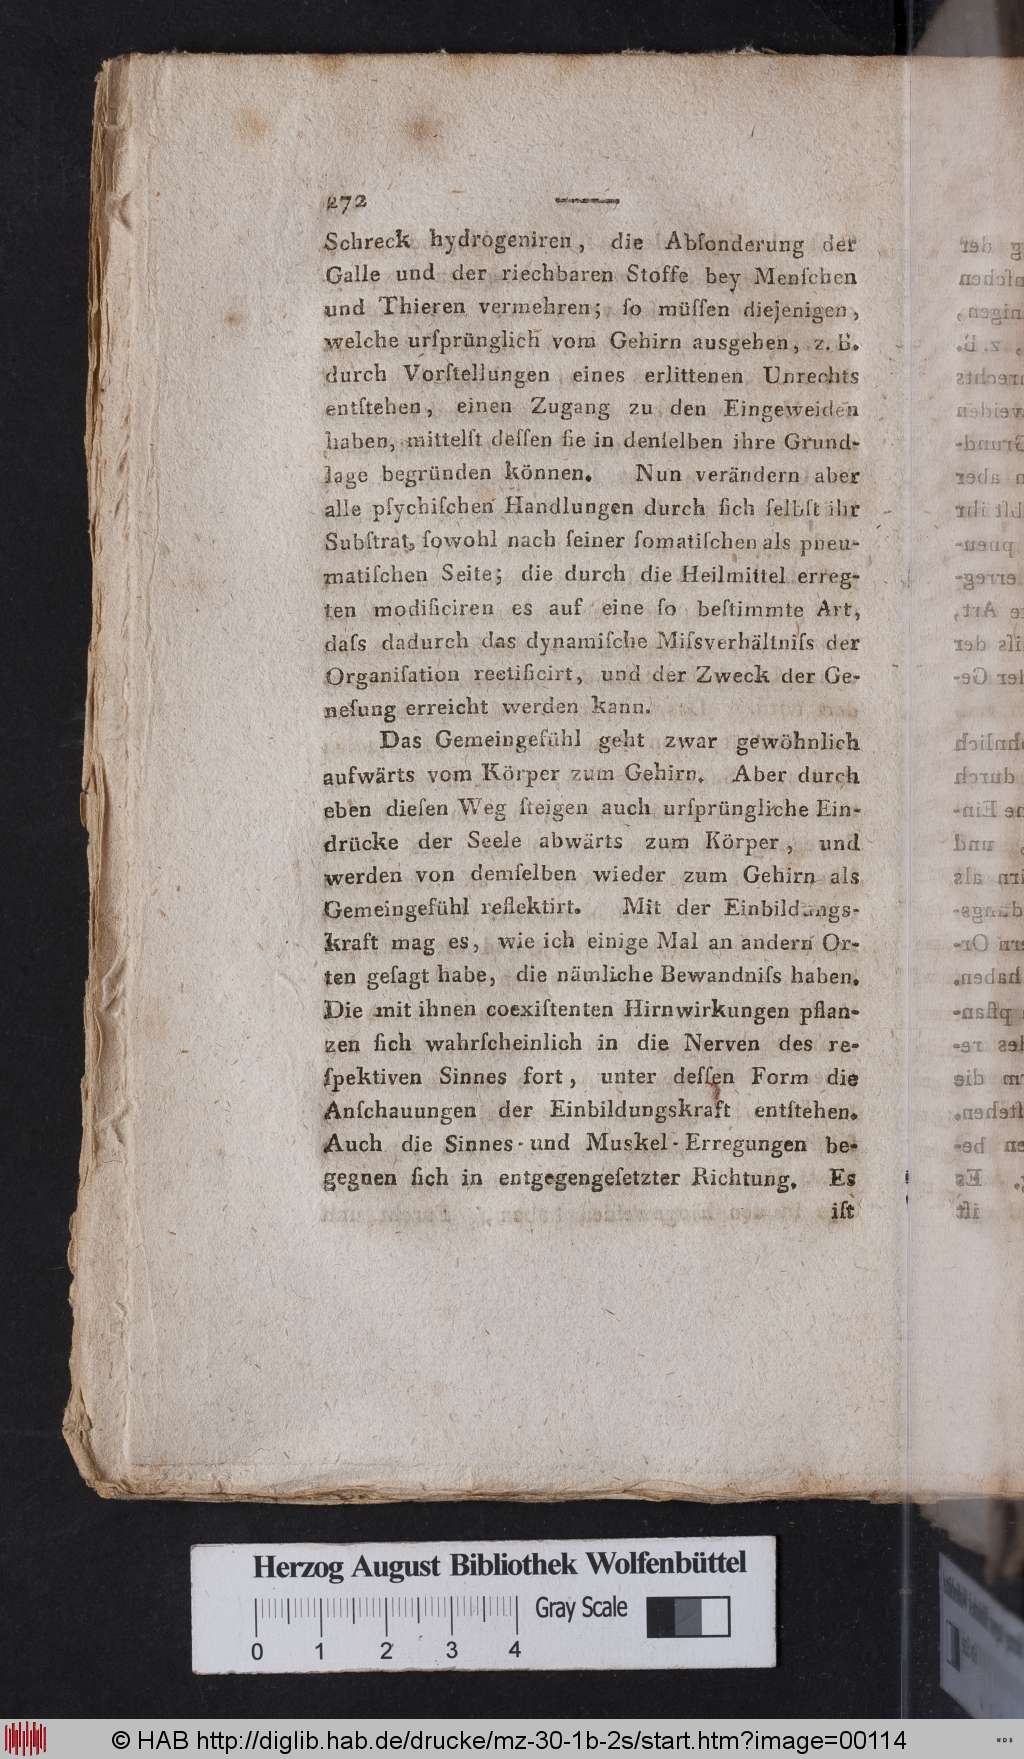 272
Schreck hydrogeniren, die Abſonderung der
Galle und der riechbaren Stoffe bey Menſchen
und Thieren vermehren; ſo müſſen diejenigen,
welche urſprünglich vom Gehirn ausgehen, z. B.
durch Vorſtellungen eines erlittenen Unrechts
entſtehen, einen Zugang zu den Eingeweiden
haben, mittelſt deſſen ſie in denſelben ihre Grund-
lage begründen können. Nun verändern aber
alle pſychiſchen Handlungen durch ſich ſelbſt ihr
Subſtrat, ſowohl nach ſeiner ſomatiſchen als pneu-
matiſchen Seite; die durch die Heilmittel erreg-
ten modificiren es auf eine ſo beſtimmte Art,
daſs dadurch das dynamiſche Miſsverhältniſs der
Organiſation rectificirt, und der Zweck der Ge-
neſung erreicht werden kann.
Das Gemeingefühl geht zwar gewöhnlich
aufwärts vom Körper zum Gehirn. Aber durch
eben dieſen Weg ſteigen auch urſprüngliche Ein-
drücke der Seele abwärts zum Körper, und
werden von demſelben wieder zum Gehirn als
Gemeingefühl reflektirt. Mit der Einbildungs-
kraft mag es, wie ich einige Mal an andern Or-
ten geſagt habe, die nämliche Bewandniſs haben.
Die mit ihnen coexiſtenten Hirnwirkungen pflan-
zen ſich wahrſcheinlich in die Nerven des re-
ſpektiven Sinnes fort, unter deſſen Form die
Anſchauungen der Einbildungskraft entſtehen.
Auch die Sinnes- und Muskel-Erregungen be-
gegnen ſich in entgegengeſetzter Richtung. Es
iſt
Herzog August Bibliothek Wolfenbüttel
Gray Scale
0 1 2 3 4
© HAB http://diglib.hab.de/drucke/mz-30-1b-2s/start.htm?image=00114